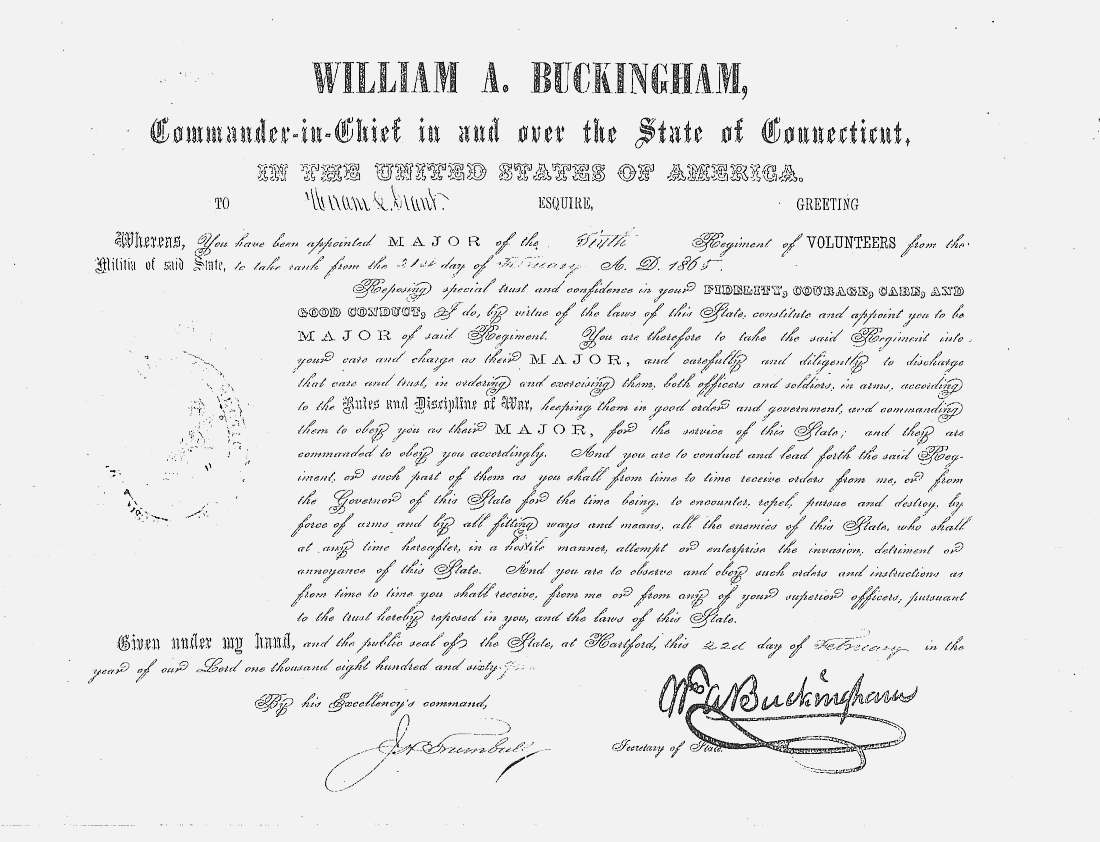 WILLIAM A. BUCKINGHAM,
Commander-in-Chief in and over the State of Connecticut,
IN THE UNITED STATES OF AMERICA.
TO Hiram L. Grant. ESQUIRE, GREETING
Whereas, You have been appointed MAJOR of the Sixth Regiment of VOLUNTEERS from the
Militia of said State, to take rank from the 21st day of February A. D. 1865.
Reposing special trust and confidence in your FIDELITY, COURAGE, CARE, AND
GOOD CONDUCT, I do, by virtue of the laws of this State, constitute and appoint you to be
MAJOR of said Regiment. You are therefore to take the said Regiment into
your care and charge as their MAJOR, and carefully and diligently to discharge
that care and trust, in ordering and exercising them, both officers and soldiers, in arms, according
to the Rules and Discipline of War, keeping them in good order and government, and commanding
them to obey you as their MAJOR, for the service of this State; and they are
commanded to obey you accordingly. And you are to conduct and lead forth the said Reg-
iment, or such part of them as you shall from time to time receive orders from me, or from
the Governor of this State for the time being, to encounter, repel, pursue and destroy, by
force of arms and by all fitting ways and means, all the enemies of this State, who shall
at any time hereafter, in a hostile manner, attempt or enterprise the invasion, detriment or
annoyance of this State. And you are to observe and obey such orders and instructions as
from time to time you shall receive, from me or from any of your superior officers, pursuant
to the trust hereby reposed in you, and the laws of this State.
Given under my hand, and the public seal of the State, at Hartford, this 22d day of February in the
year of our Lord one thousand eight hundred and sixty-five
By his Excellency's command,
Wm A Buckingham
J H Trumbull
Secretary of State.